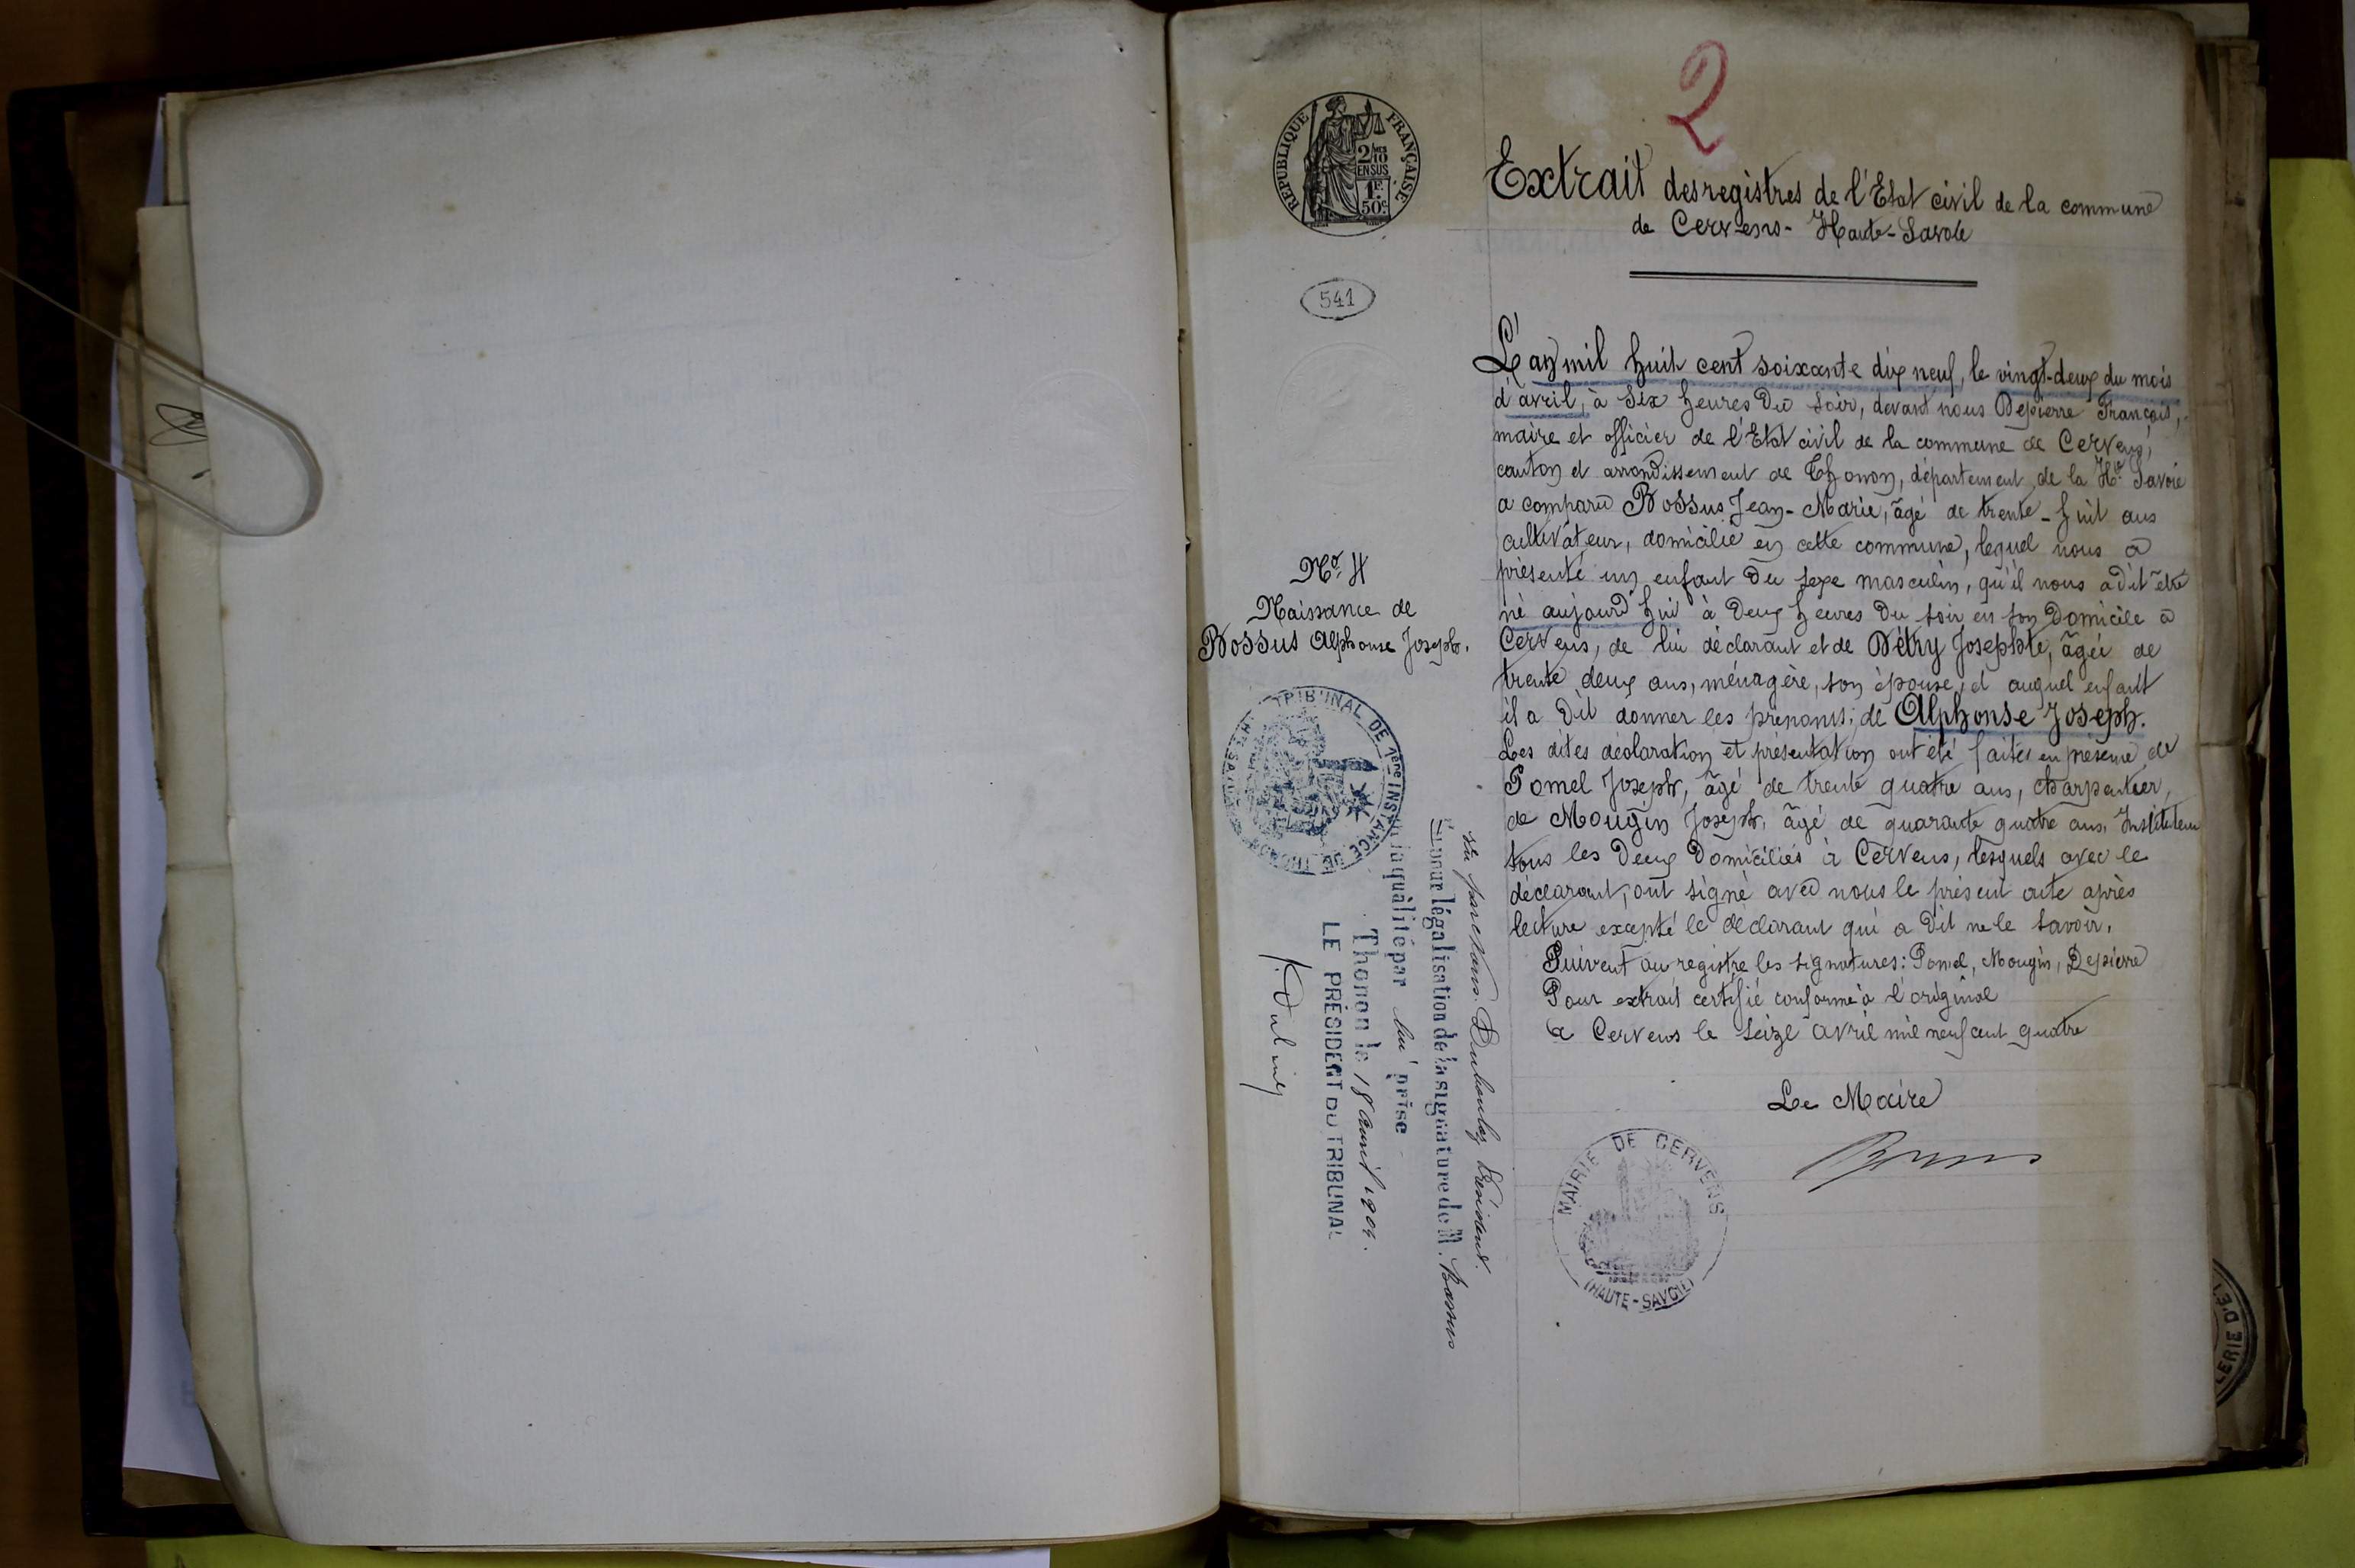 2
RÉPUBLIQUE FRANÇAISE
2/10
EN SUS
1F.
50c.
Extrait des registres de l'Etat civil de la commune
de Cervens - Haute-Savoie
541
L'an mil huit cent soixante dix neuf, le vingt-deux du mois
d'avril, à six heures du soir, devant nous Depierre François,
maire et officier de l'Etat civil de la commune de Cervens,
canton et arrondissement de Thonon, département de la Hte Savoie
a comparu Bossus Jean-Marie, âgé de trente-huit ans
cultivateur, domicilié en cette commune, lequel nous a
présenté un enfant du sexe masculin, qu'il nous a dit être
né aujourd'hui à deux heures du soir en son domicile à
Cervens, de lui déclarant et de Détry Josephte, âgée de
trente deux ans, ménagère, son épouse, et auquel enfant
il a dit donner les prénoms de Alphonse Joseph.
Les dites déclaration et présentation ont été faites en présence de
Pomel Joseph, âgé de trente quatre ans, charpentier,
de Mougin Joseph, âgé de quarante quatre ans, Instituteur
tous les deux domiciliés à Cervens, lesquels avec le
déclarant, ont signé avec nous le présent acte après
lecture excepté le déclarant qui a dit ne le savoir.
Suivent au registre les signatures: Pomel, Mougin, Depierre
Pour extrait certifié conforme à l'original
à Cervens le seize avril mil neuf cent quatre
Le Maire
MAIRIE DE CERVENS
(HAUTE-SAVOIE)
No. 4
Naissance de
Bossus Alphonse Joseph.
TRIBUNAL DE 1ère INSTANCE DE THONON
Vu par nous Président
pour légalisation de la signature de M. Bossus
la qualité par lui prise
Thonon le 18 avril 1904.
LE PRÉSIDENT DU TRIBUNAL
LERIE D'ÉT